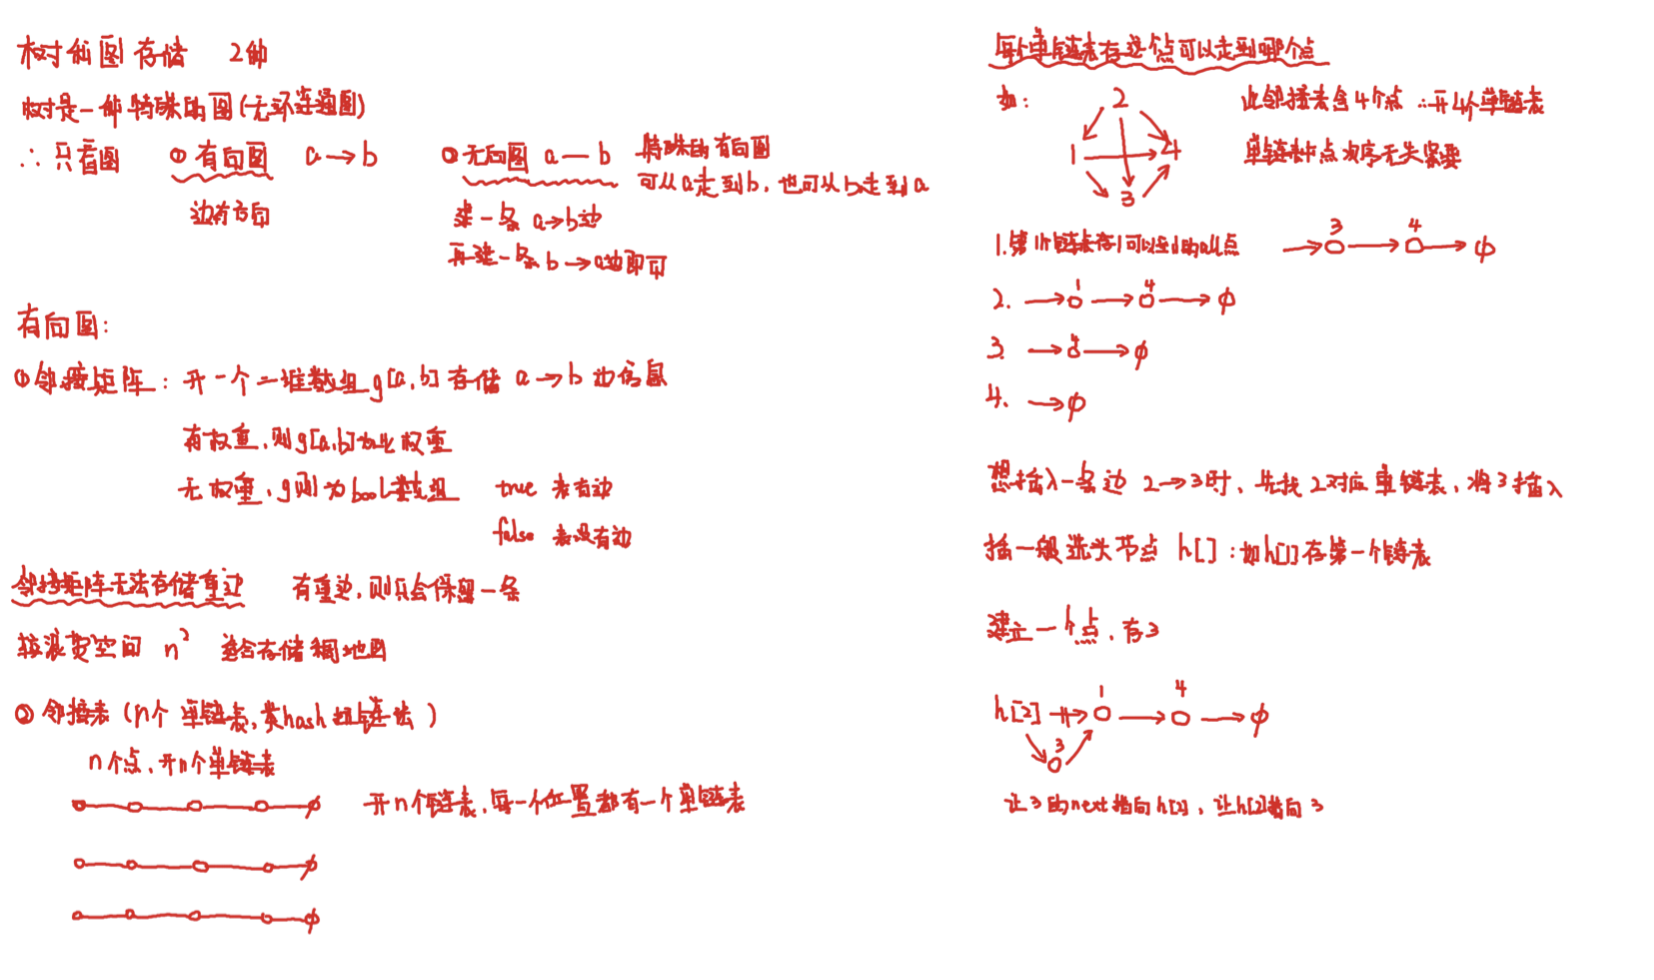 树和图存储 2种
树是一种特殊的图(无环连通图)
∴ 只看图 ① 有向图 a→b ② 无向图 a—b 特殊的有向图
可以a走到b, 也可以b走到a
边有方向
建一条 a→b边
再建一条 b→a边即可
有向图:
① 邻接矩阵: 开一个二维数组g[a,b]存储 a→b 边信息
有权重,则g[a,b]为此权重
无权重,g则为bool数组 true 表有边
false 表没有边
邻接矩阵无法存储重边 有重边,则只会保留一条
较浪费空间 n² 适合存储稠密图
② 邻接表 (n个单链表,类hash拉链法)
n个点,开n个单链表
开n个链表,每一个位置都有一个单链表
每个单链表存这个点可以走到哪个点
如: 2 此邻接表含4个点 ∴开4个单链表
1 4 单链表中点次序无关紧要
3
1.第1个链表存1可以走到的all点 → 3 → 4 → ∅
2. → 1 → 4 → ∅
3. → 4 → ∅
4. → ∅
想插入一条边 2→3时, 先找2对应单链表, 将3插入
插一般选头节点 h[] :如h[1]存第一个链表
建立一个点, 存3
h[2] → 1 → 4 → ∅
3
让3的next指向h[2], 让h[2]指向3